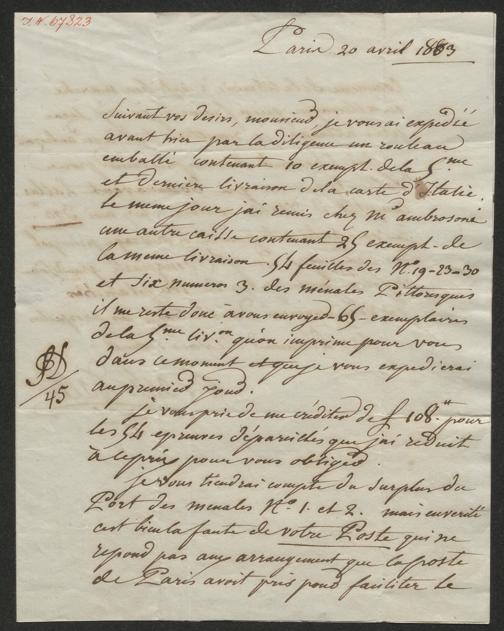 I.N. 67323
Paris 20 avril 1803
Suivant vos desirs, monsieur je vous ai expedié
avant hier par la diligence un rouleau
emballé contenant 10 exempt. de la 5.me
et derniere livraison de la carte d'Italie.
le meme jour j'ai remis chez Mr ambrosone
une autre caisse contenant 25 exempt. de
la meme livraison. 54 feuilles des No. 19-23-30
et six numeros 3. des ménales Pittoresques
il me reste donc à vous envoyer -65- exemplaires
de la 5.me liv.on qu'on imprime pour vous
dans ce moment et que je vous expedierai
au premier jour.
45
je vous prie de me créditer de £ 108.tt pour
les 54 epreuves dépareillés que j'ai reduit
à ce prix pour vous obliger.
je vous tiendrai compte du surplus du
Port des menales No. 1. et 2. mais en verité
c'est bien la faute de votre Poste qui ne
repond pas aux arrangement que la poste
de Paris avoit pris pour faciliter le